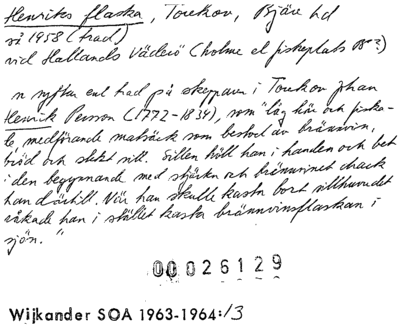 Henriks flaska, Torekov, Bjäre hd
sö 1958 (trad)
vid Hallands Väderö (holme el fiskeplats B?)
n syftar enl trad på skepparen i Torekov Johan
Henrik Persson (1772-1834), som "låg här och fiska-
de, medförande matsäck som bestod av brännvin,
bröd och stekt sill. Sillen höll han i handen och bet
i den begynnande med stjärten och brännvinet drack
han därtill. När han skulle kasta bort sillhuvudet
råkade han i stället kasta brännvinsflaskan i
sjön."
00026129
Wijkander SOA 1963-1964:13